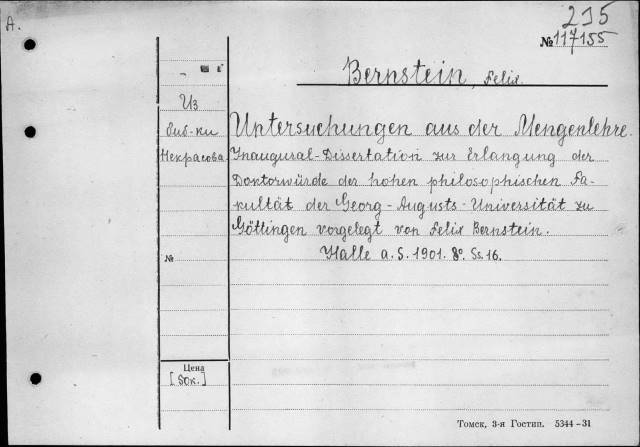 A.
295
№ 117155
Bernstein, Felix.
Из
биб-ки
Некрасова
Untersuchungen aus der Mengenlehre.
Inaugural-Dissertation zur Erlangung der
Doktorwürde der hohen philosophischen Fa-
kultät der Georg-Augusts-Universität zu
Göttingen vorgelegt von Felix Bernstein.
Halle a. S. 1901. 8°. Ss. 16.
№
Цена
[50к.]
Томск, 3-я Гостип. 5344-31